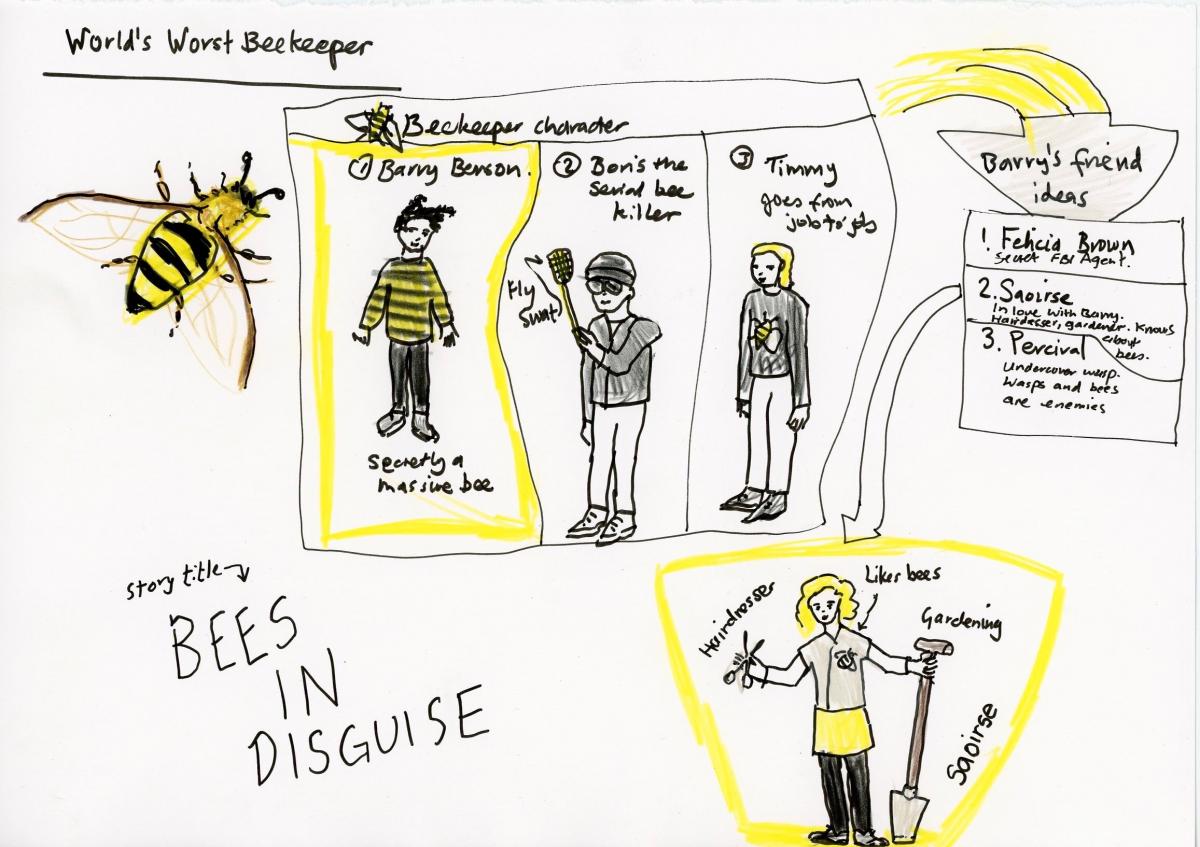 World's Worst Beekeeper
Beekeeper character
① Barry Benson.
Secretly a
massive bee
② Boris the
serial bee
killer
Fly
Swat
③ Timmy
goes from
job to job
Barry's friend
ideas
1. Felicia Brown
Secret FBI Agent.
2. Saoirse
In love with Barry.
Hairdresser, gardener. Knows
about
bees.
3. Percival
Undercover wasp.
Wasps and bees
are enemies
story title
BEES
IN
DISGUISE
Hairdresser
Likes bees
Gardening
Saoirse